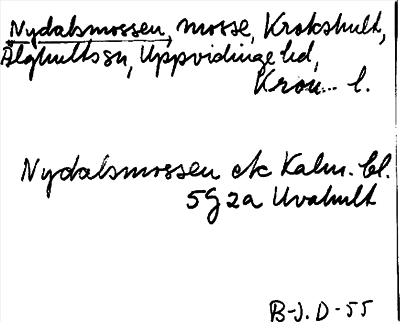 Nydalsmossen, mosse, Krokshult,
Älghults sn, Uppvidinge hd,
Kron. l.
Nydalsmossen ek Kalm. bl.
5G 2a Uvahult
B-J. D-55